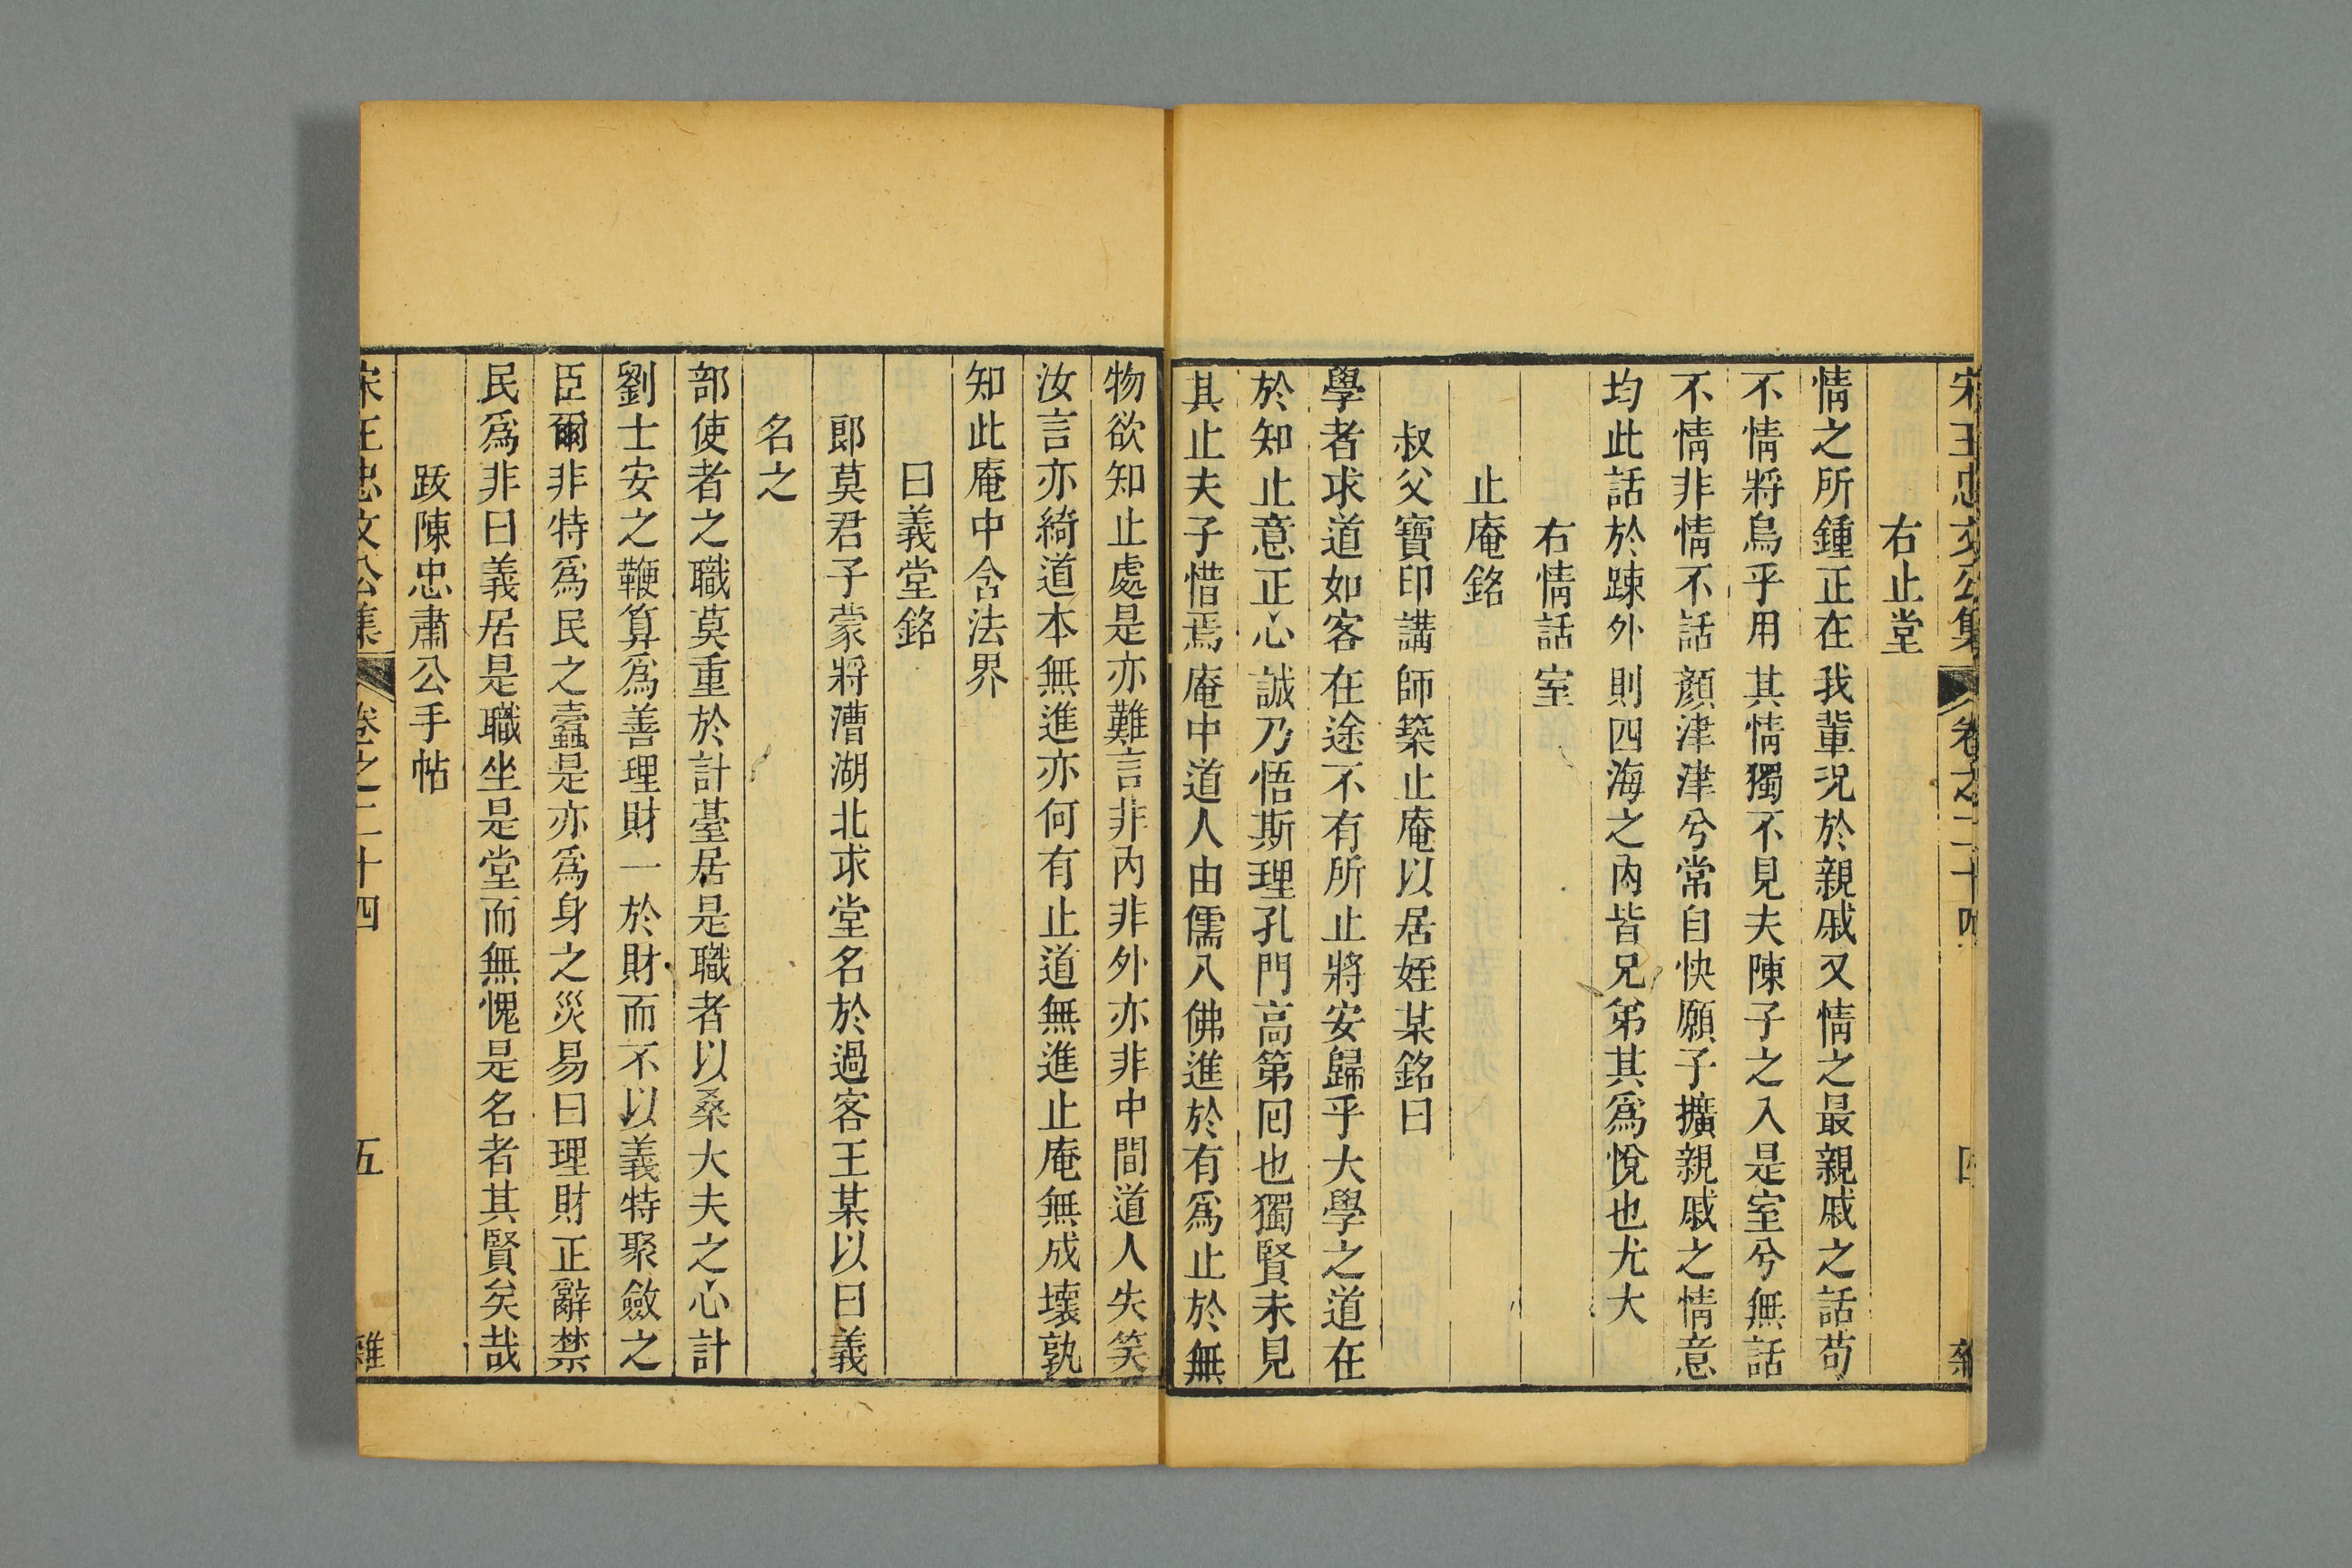 宋王忠文公集 卷之二十四 四 雜
右止堂
情之所鍾正在我輩況於親戚又情之最親戚之話苟
不情將烏乎用其情獨不見夫陳子之入是室兮無話
不情非情不話顏津津兮常自快願子擴親戚之情意
均此話於踈外則四海之內皆兄弟其爲悅也尤大
右情話室
止庵銘
叔父寶印講師築止庵以居姪某銘曰
學者求道如客在途不有所止將安歸乎大學之道在
於知止意正心誠乃悟斯理孔門高第回也獨賢未見
其止夫子惜焉庵中道人由儒入佛進於有爲止於無
物欲知止處是亦難言非內非外亦非中間道人失笑
汝言亦綺道本無進亦何有止道無進止庵無成壞孰
知此庵中含法界
曰義堂銘
郎莫君子蒙將漕湖北求堂名於過客王某以曰義
名之
部使者之職莫重於計臺居是職者以桑大夫之心計
劉士安之鞭算爲善理財一於財而不以義特聚斂之
臣爾非特爲民之蠹是亦爲身之災易曰理財正辭禁
民爲非曰義居是職坐是堂而無愧是名者其賢矣哉
跋陳忠肅公手帖
宋王忠文公集 卷之二十四 五 雜